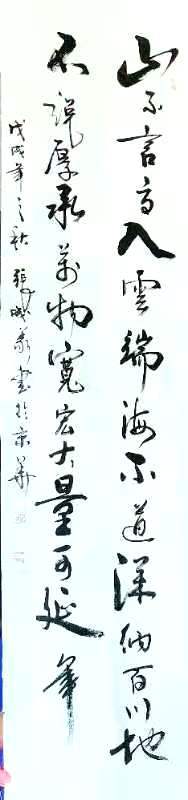 山不言高入雲端海不道深納百川地
不說厚承萬物寬宏大量可延年
戊戌年之秋張成義書於京華